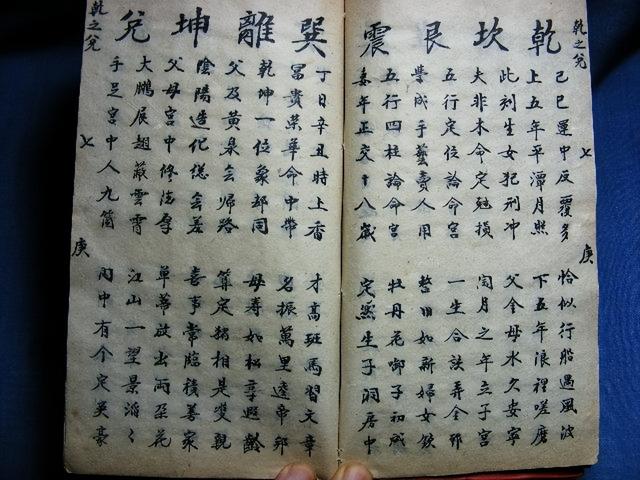 乾之兌 七 庚
乾 坎 艮 震
己巳運中反覆多 恰似行船遇風波
上五年平潭月照 下五年浪裡嗟磨
此刻生女犯刑冲 父金母水久安寧
夫非木命定尅損 閏月之年立子宮
五行定位論命宮 一生合法弄金
學成手藝賣人用 整旧如新婦女欽
五行四柱論命宮 牡丹花卸子初成
妻年正交十八歲 定然生子洞房中
巽 離 坤 兌
丁日辛丑時上香 才高班馬習文章
富貴榮華命中帶 名振萬里達帝邦
乾坤一位不同 母寿如松享遐齡
父及黃泉会歸路 算定猪相是雙親
陰陽造化總無差 喜事常臨積善家
父母宮中修法厚 單蒂放出兩朶花
大鵬展翅蔽雲霄 江山一望景滔々
手足宮中人九箇 內中有个定英豪
乾之兌 七 庚